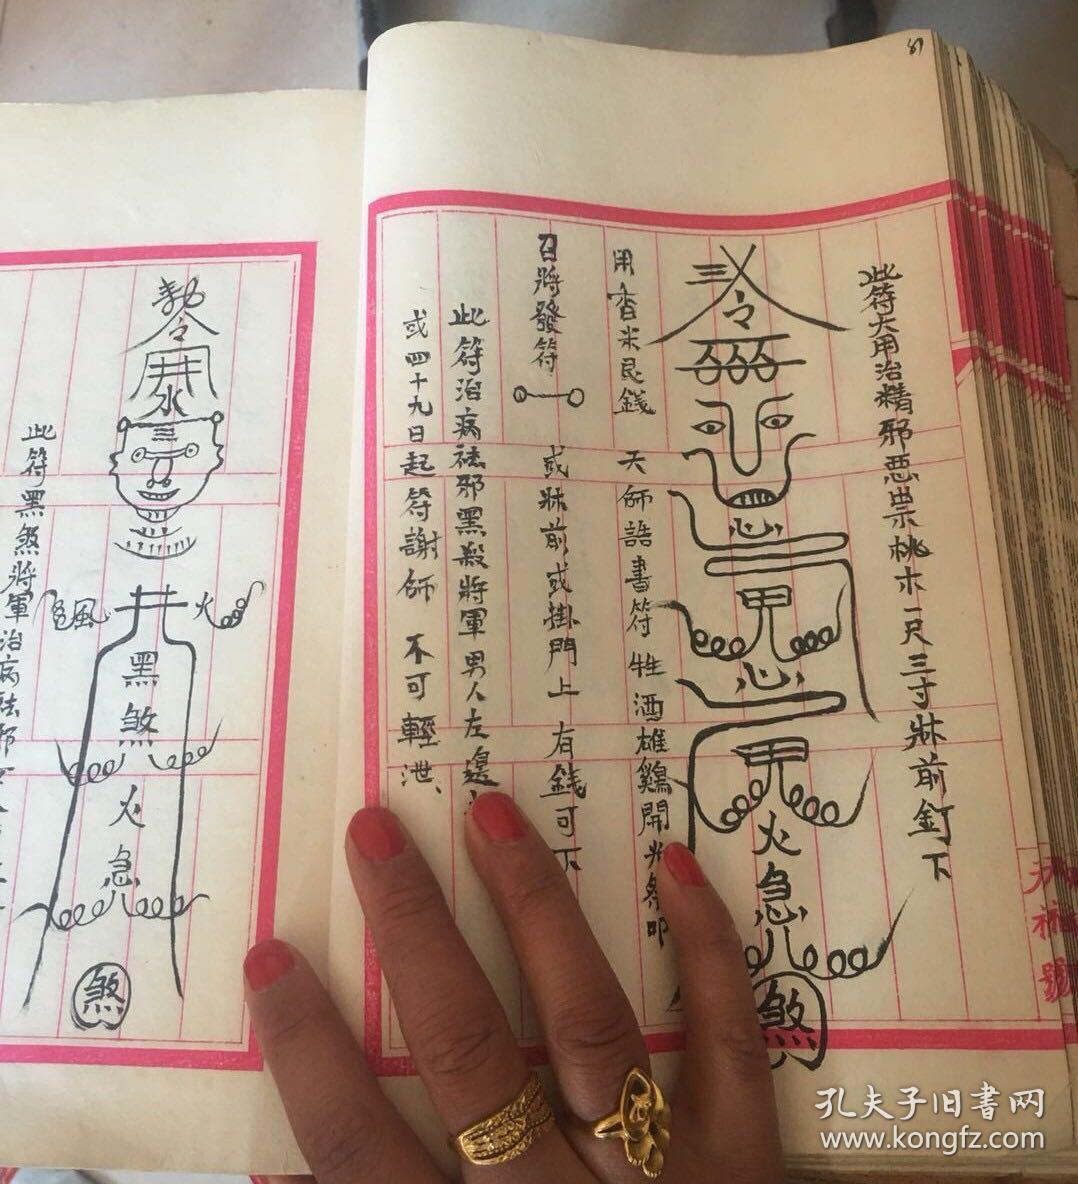 81
此符大用治精邪惡祟桃木一尺三寸牀前釘下
令
心
甲
心
火急
煞
用香米艮錢 天師誥書符 牲酒雄鷄開光祭叩
召將發符 或牀前或掛門上 有錢可下
此符治病祛邪黑殺將軍男人左邊
或四十九日起符謝師 不可輕泄、
令
井
水
三
風 井 火
黑煞
火急
煞
此符黑煞將軍治病祛邪
號
孔夫子旧書网
www.kongfz.com